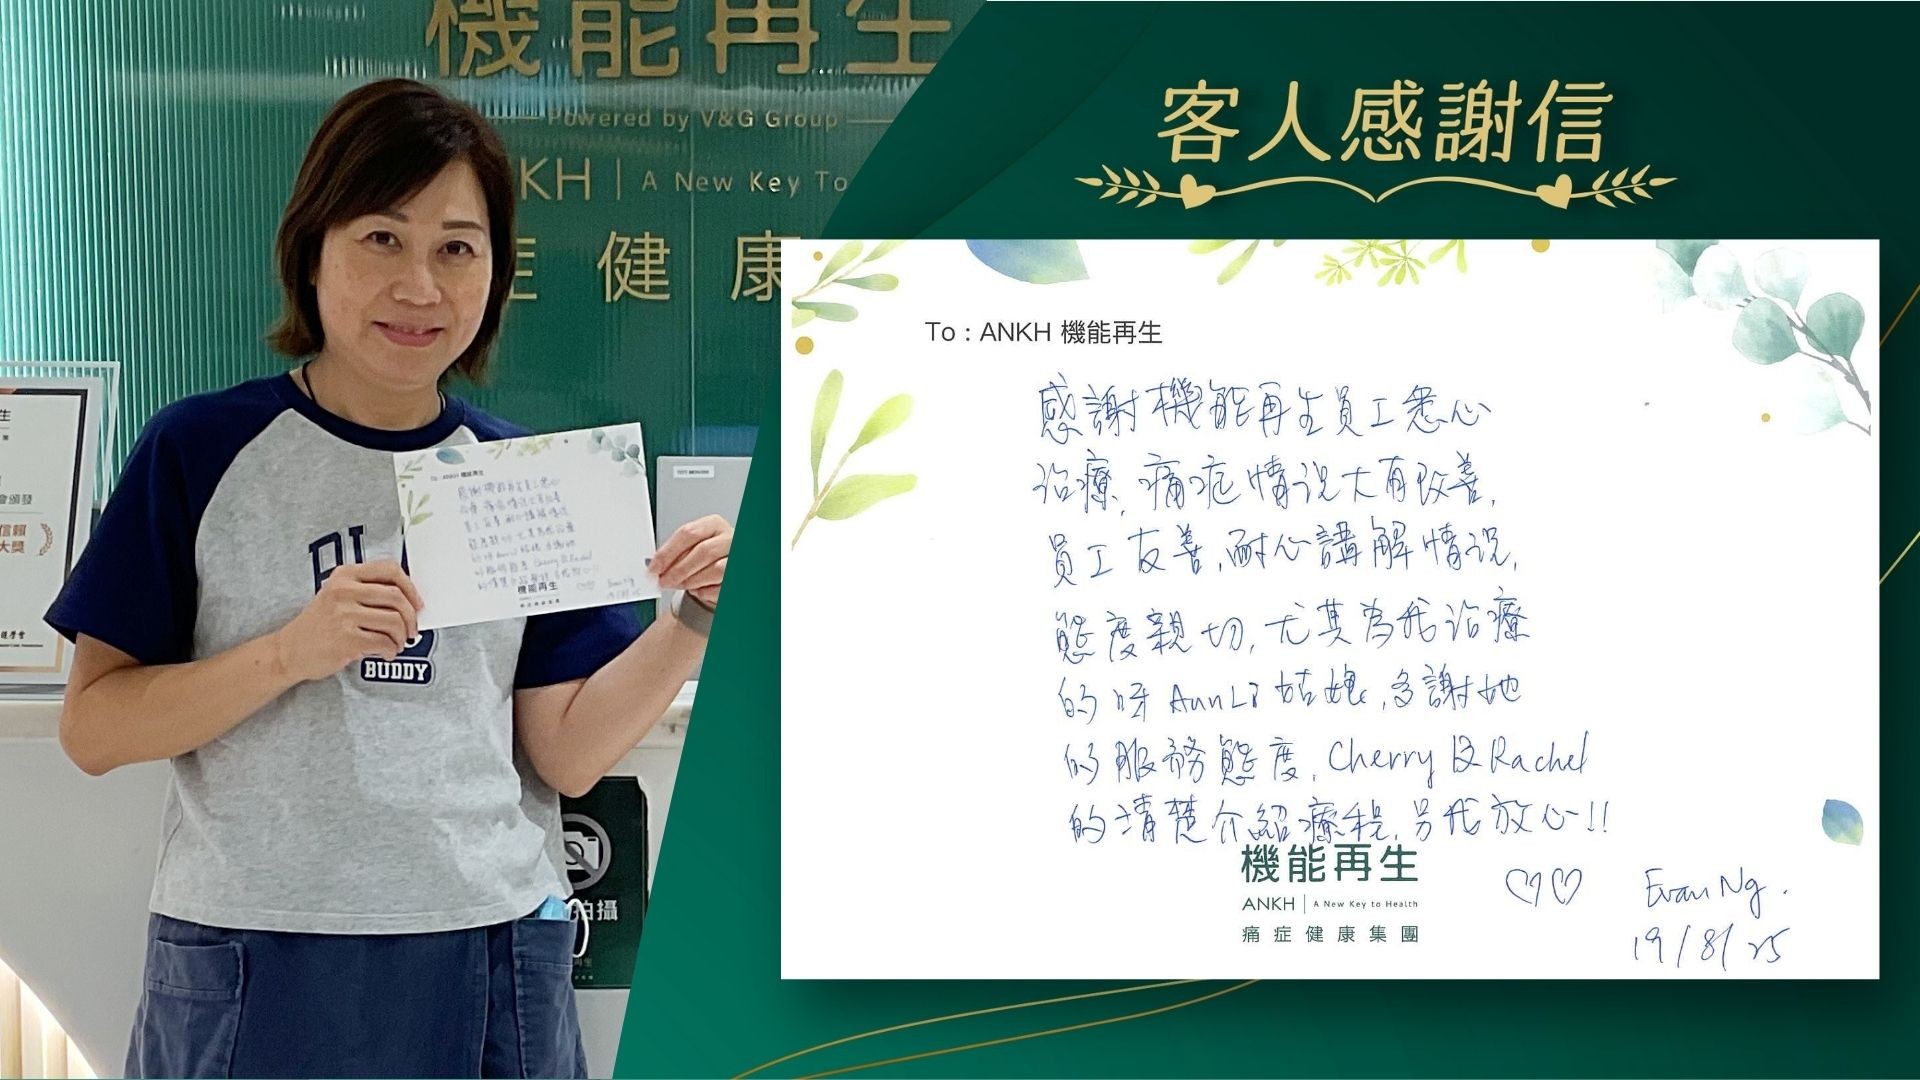 機能再生
Powered by V&G Group
KH | A New Key To
症 健 康
客人感謝信
To : ANKH 機能再生
感謝機能再生員工悉心
治療,痛症情況大有改善,
員工友善,耐心講解情況,
態度親切,尤其為我治療
的呀Ann Li 姑娘,多謝她
的服務態度,Cherry及Rachel
的清楚介紹療程,另我放心!!
機能再生
ANKH | A New Key to Health
痛症健康集團
Evan Ng.
19/8/25
BUDDY